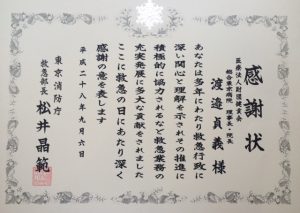 感謝状
医療法人財団健貢会
総合東京病院 理事長・院長
渡邉貞義様
あなたは多年にわたり救急行政に
深い関心と理解を示されその推進に
積極的に協力されるなど救急業務の
充実発展に多大な貢献をされました
ここに救急の日にあたり深く
感謝の意を表します
平成二十八年九月六日
東京消防庁
救急部長 松井晶範